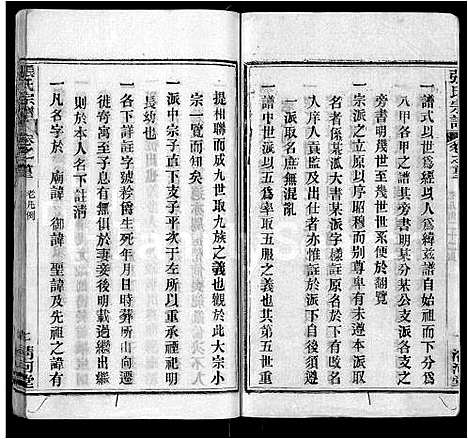 張氏宗譜
一譜式以世爲經以人爲緯茲譜自始祖而下分爲
八甲各甲之譜其旁書明某分某公支派
旁書明幾世至幾世系便於閱
一宗派之立原以序昭穆而别尊卑有未遵本派取
名者係某派大書某派字樣註原名於下有
人庠入貢監及出仕者亦惟註於派下以後須遵
一派取名庶無混亂
一譜中世派五世一提取五服之義也其第五世重
提相聯而成九世取九族之義也觀於此大宗小
宗一覽而知矣
一派中宗子直下支子平次于左所以重承祧明
長幼也
一各下詳註字號衿爵生死年月日時葬所山向遷
徙外省寄寓至于息有無俱於妻妾後明載過繼出繼
則於本人名下註清
一凡名字於 廟諱 御諱 聖諱及先祖之諱有
張氏宗譜
卷之首
老凡例
清河堂